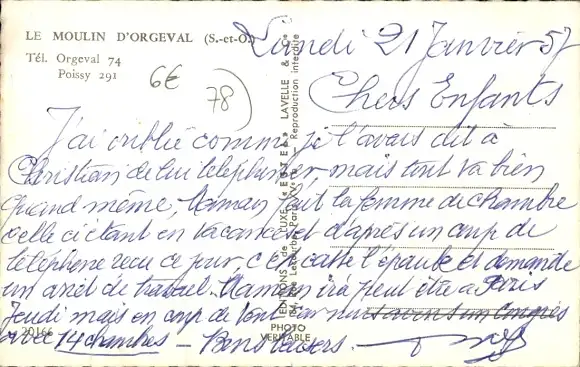 LE MOULIN D'ORGEVAL (S.-et-O.)
Tél. Orgeval 74
Poissy 291
6€
78
Lundi 21 Janvier 57
Chers Enfants
J'ai oublié comme je l'avais dit à
Christian de lui telephoner, mais tout va bien
quand même, Maman fait la femme de chambre
celle ci étant en vacances et d'après un coup de
telephone recu ce jour c'est cassé l'épaule et demande
un arret de travail. Maman ira peut être a Paris
Jeudi mais en coup de vent car nous avons un
avec 14 chambres - Bons baisers.
20166
EDITIONS de LUXE "ESTEL" LAVELLE &
Reproduction interdite
PHOTO
VERITABLE